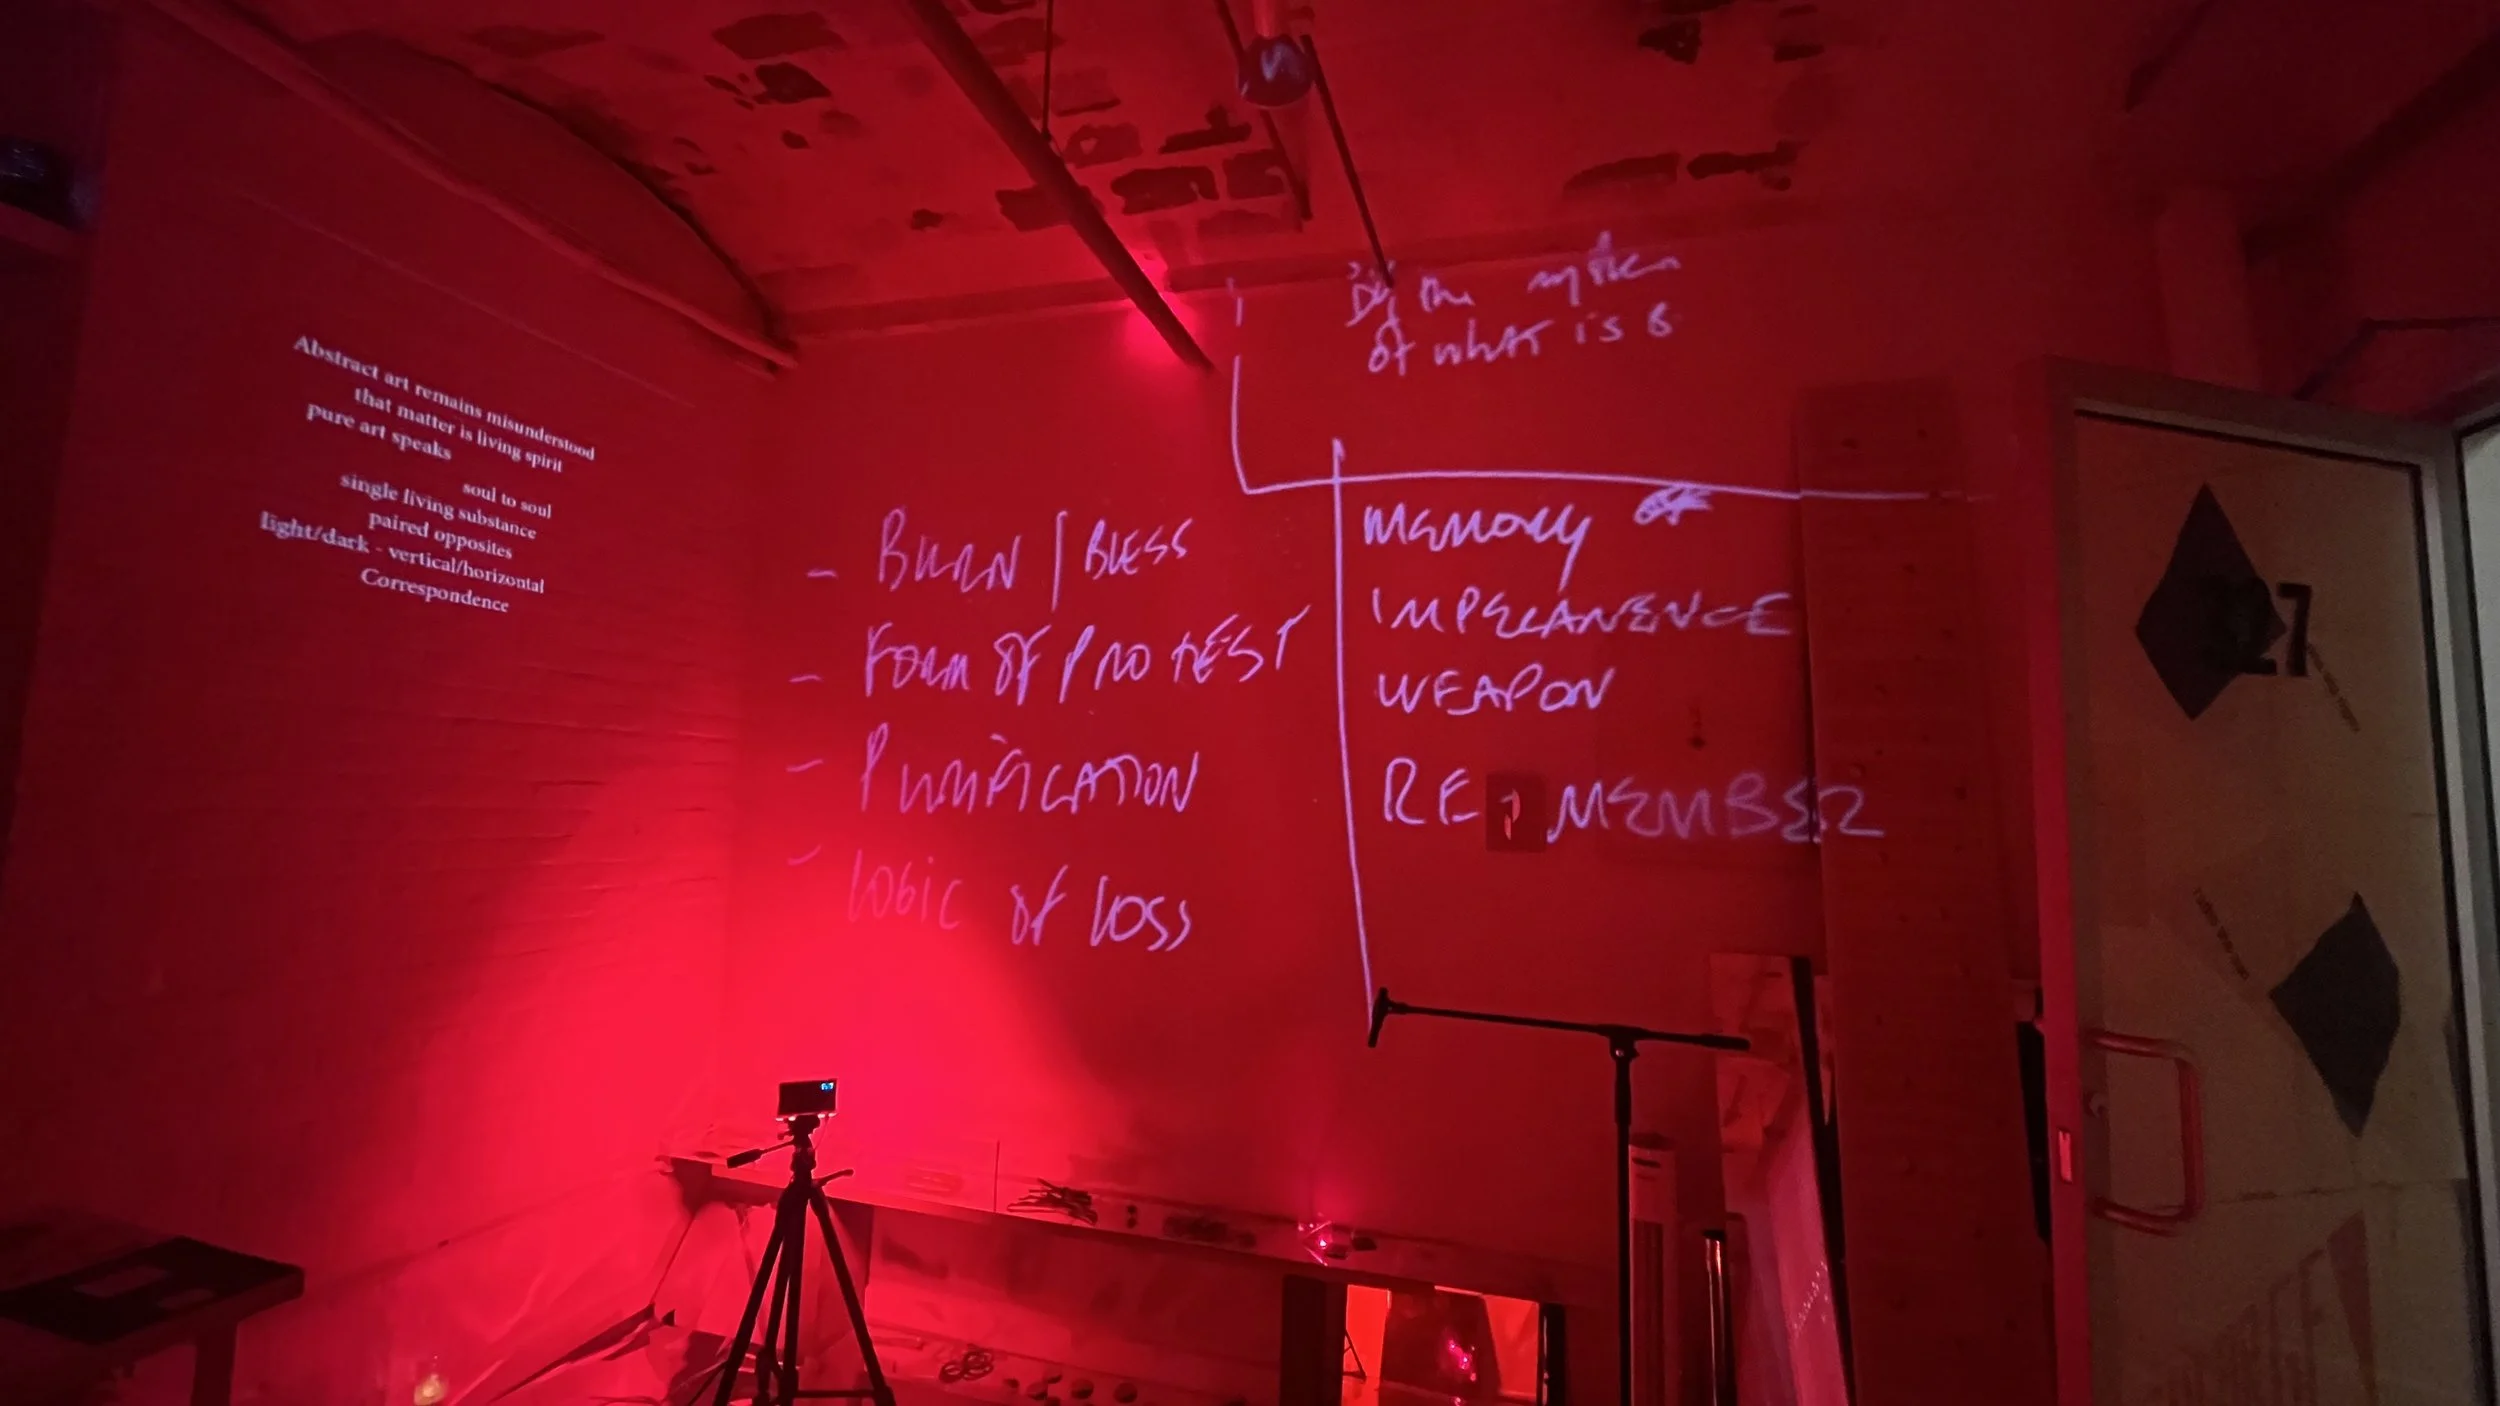 Abstract art remains misunderstood
that matter is living spirit
pure art speaks
soul to soul
single living substance
paired opposites
light/dark - vertical/horizontal
Correspondence
the
of what is
- BURN / BLESS
- FORM OF PROTEST
- PURIFICATION
- LOGIC OF LOSS
MEMORY
IMPERANENCE
WEAPON
RE MEMBER
27